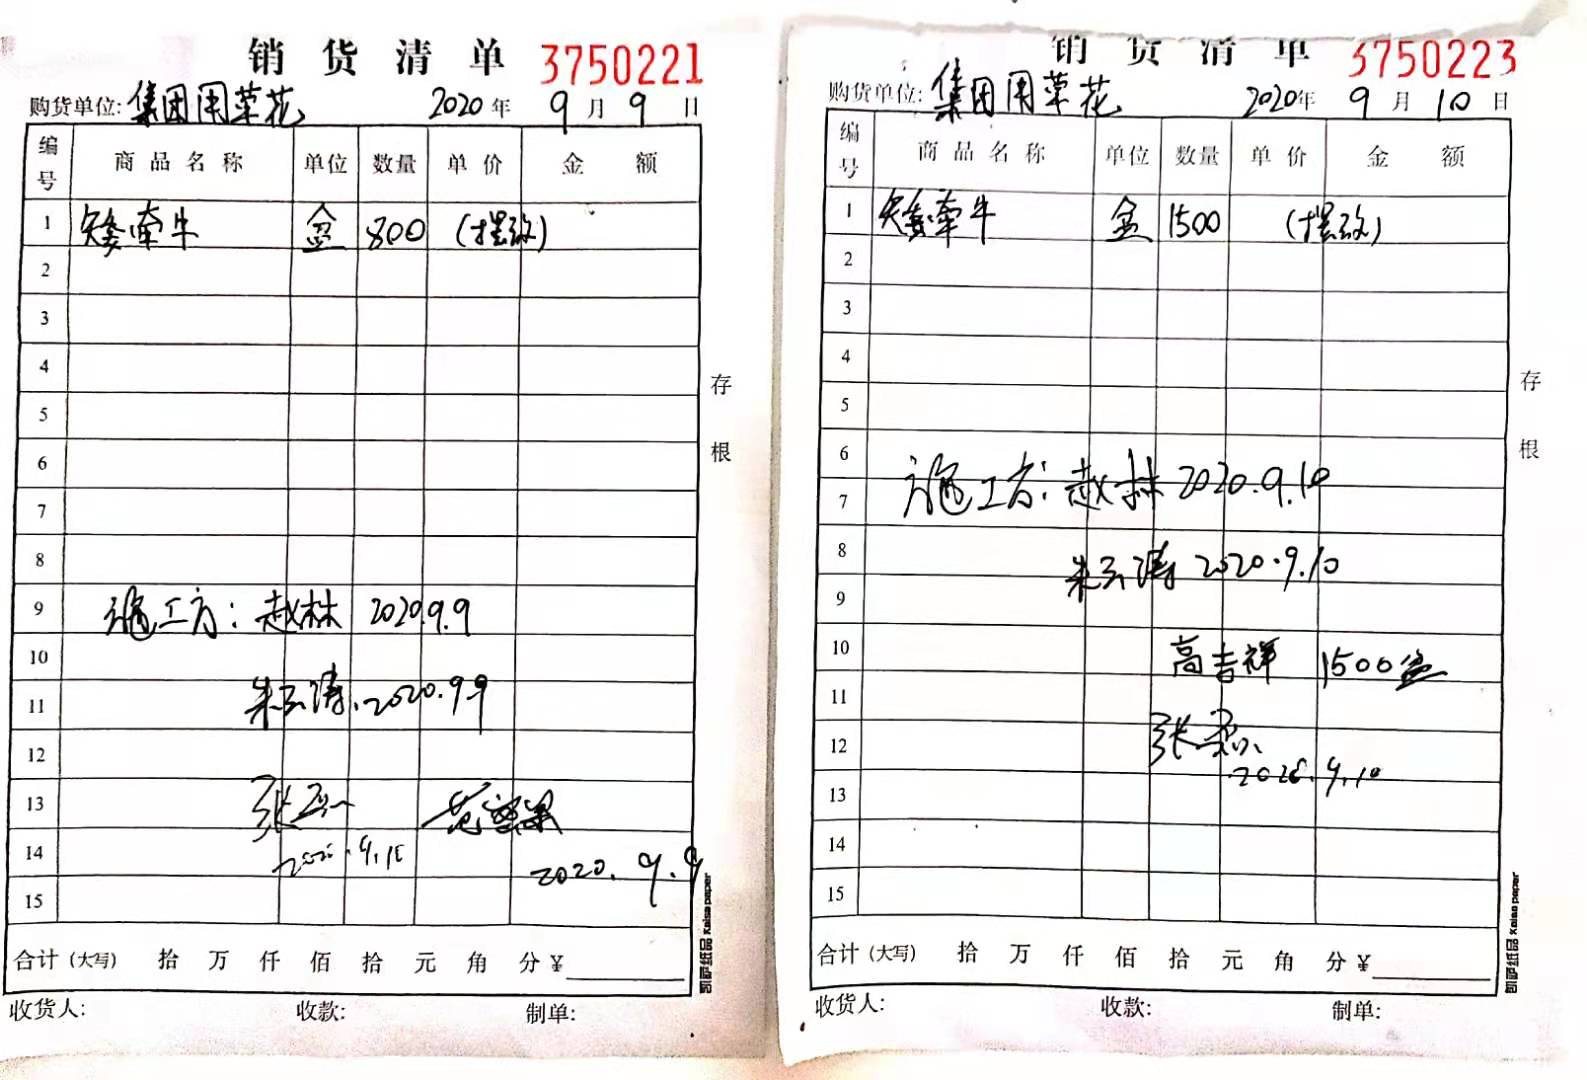 销货清单 3750221
购货单位: 集团用草花 2020年 9月 9日
编号 商品名称 单位 数量 单价 金额
1 矮牵牛 盆 800 (摆放)
2
3
4
5
6
7
8
9 施工方: 赵林 2020.9.9
10
11 朱云涛 2020.9.9
12
13 张
14 2020.9.10 2020.9.9
15
合计(大写) 拾 万 仟 佰 拾 元 角 分 ¥
收货人: 收款: 制单:
存根
凯萨纸品 Kaisa paper
销货清单 3750223
购货单位: 集团用草花 2020年 9月 10日
编号 商品名称 单位 数量 单价 金额
1 矮牵牛 盆 1500 (摆放)
2
3
4
5
6
7 施工方: 赵林 2020.9.10
8 朱云涛 2020.9.10
9
10 高吉祥 1500盆
11
12 张
13 2020.9.10
14
15
合计(大写) 拾 万 仟 佰 拾 元 角 分 ¥
收货人: 收款: 制单:
存根
凯萨纸品 Kaisa paper